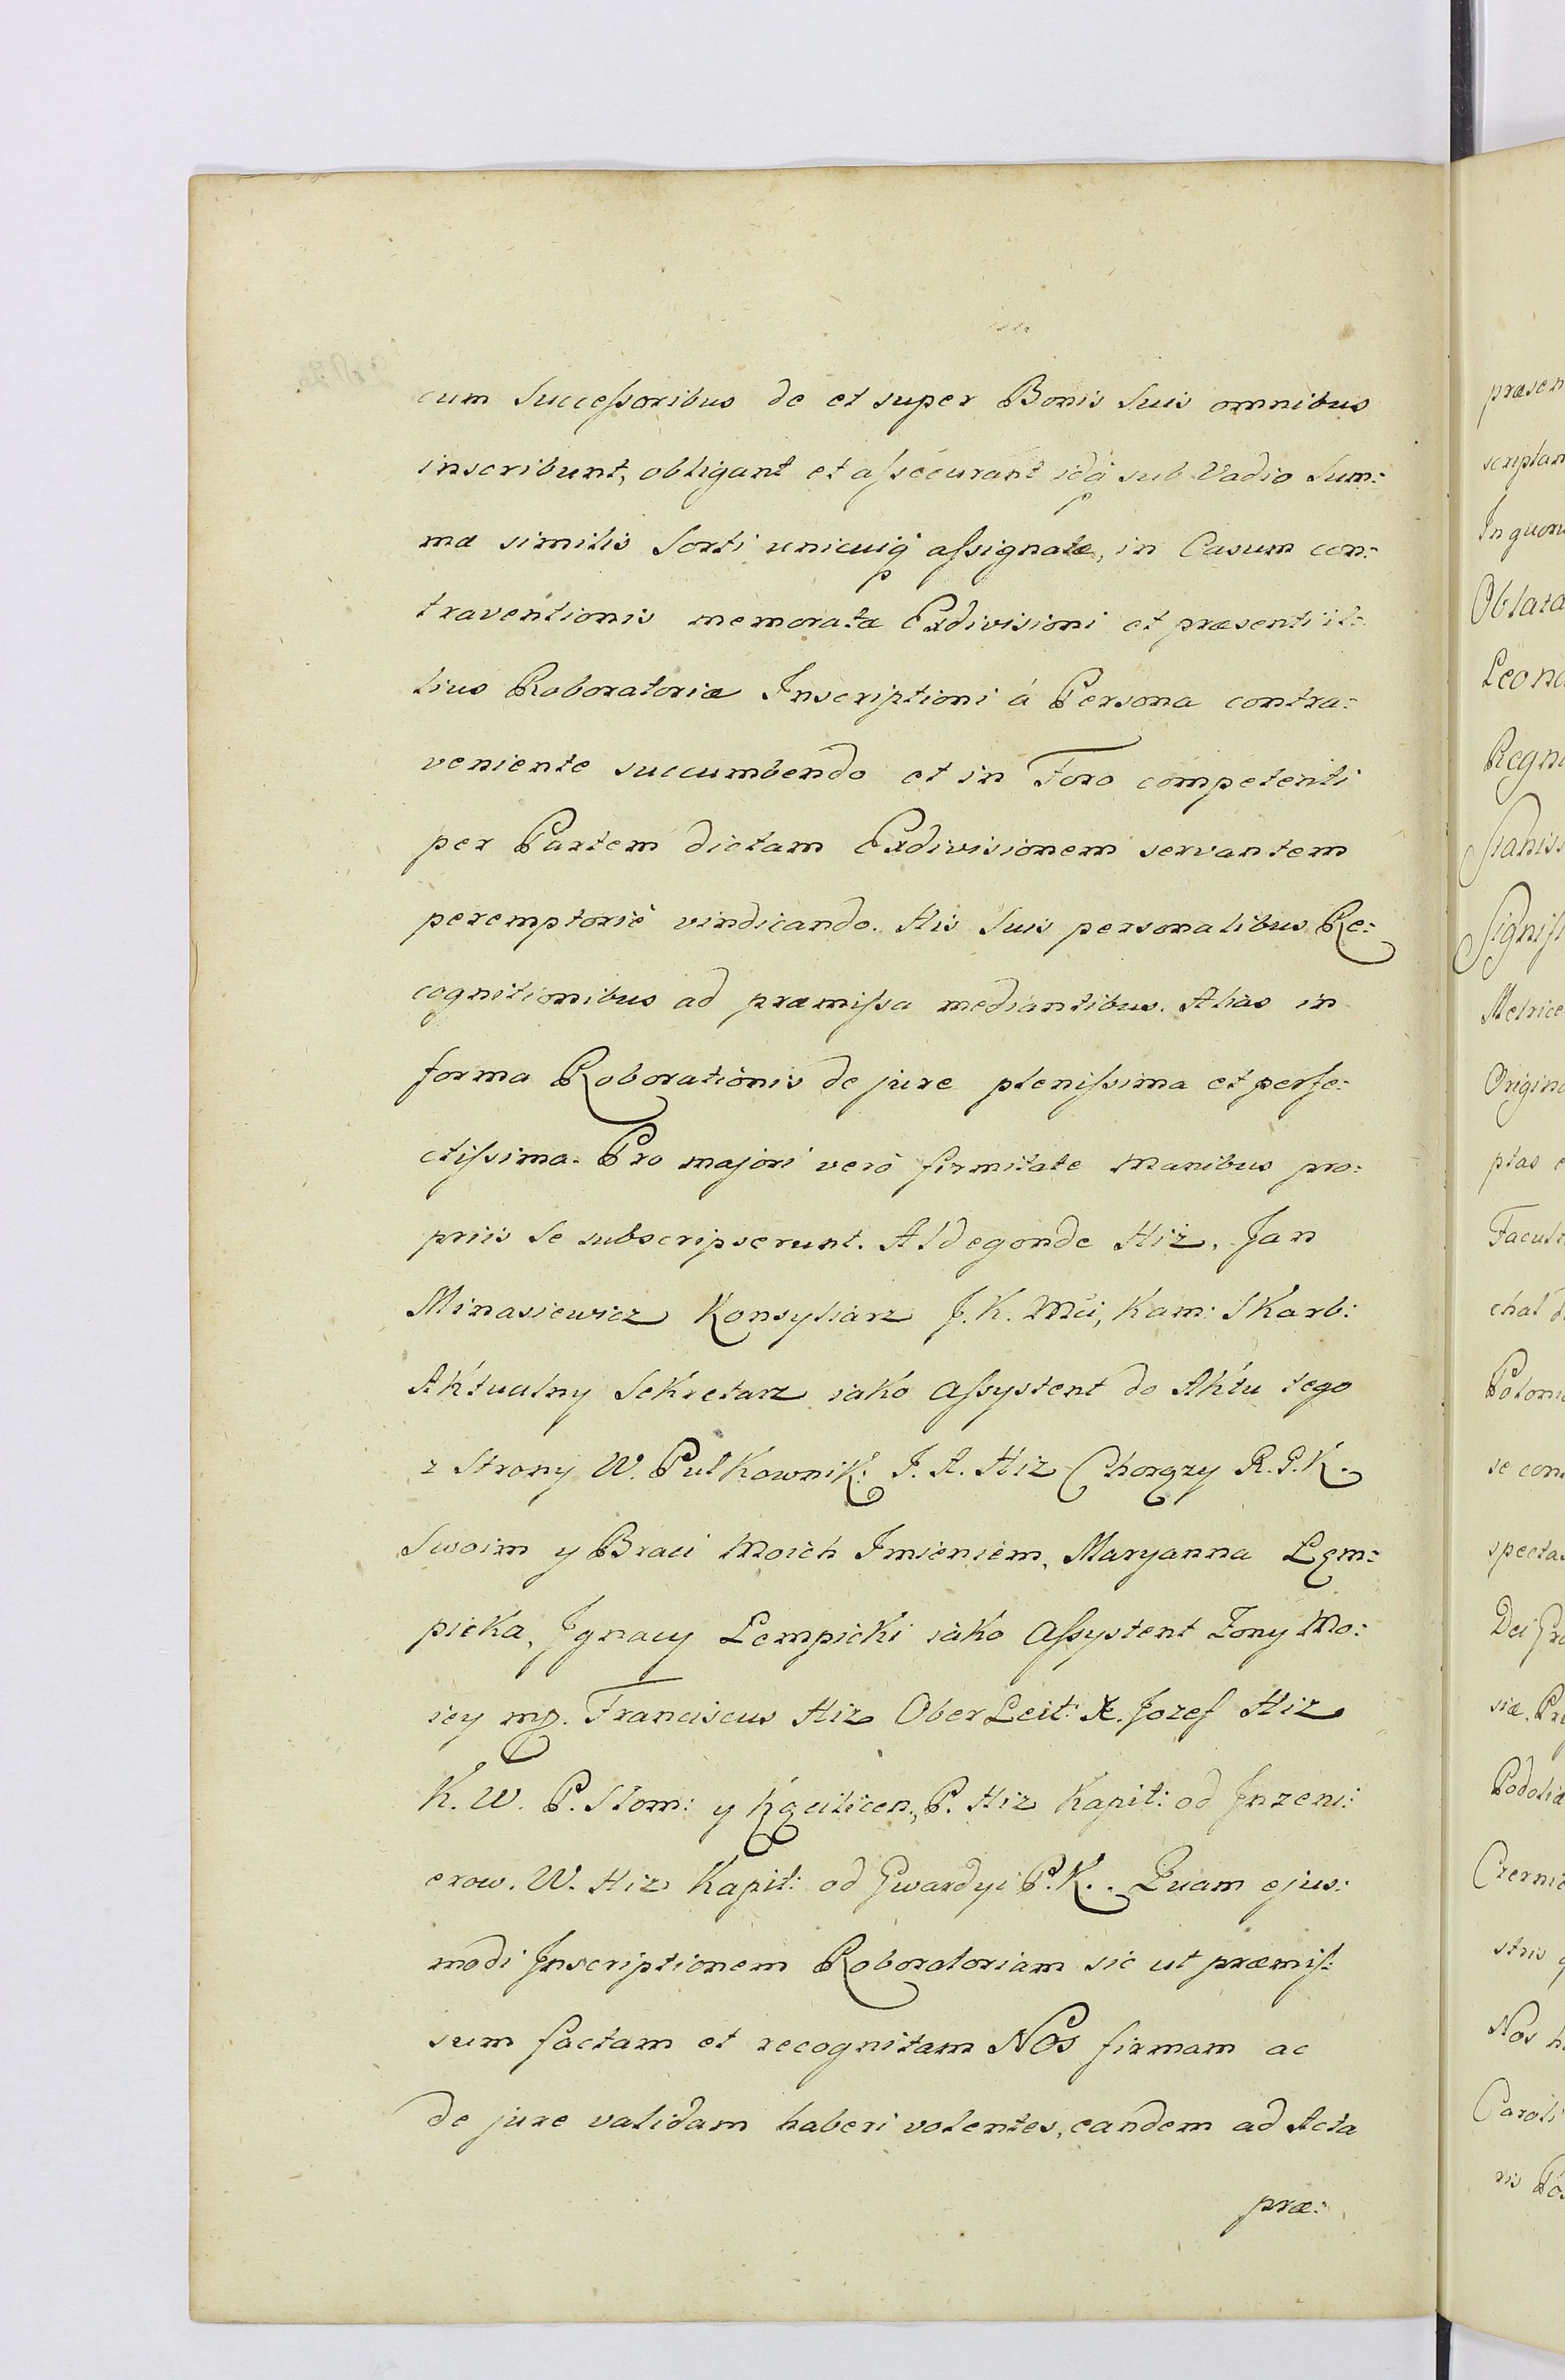 cum Successoribus de et super Bonis Suis omnibus
inscribunt, obligant et assecurant idq sub Vadio Sum:
mæ similis Sorti unicuiq assignatæ, in Casum con:
traventionis memoratæ Exdivisioni et præsenti il:
lius Roboratoriæ Inscriptioni á Persona contra:
veniente succumbendo et in Foro competenti
per Partem dictam Exdivisionem servantem
peremptorie vindicando. His Suis personalibus Re:
cognitionibus ad præmissa mediantibus. Alias in
forma Roborationis de jure plenissima et perfe:
ctissima. Pro majori vero firmitate Manibus pro:
priis Se subscripserunt. Aldegonde Hiż, Jan
Minasiewicz Konsyliarz J. K. Mci, Kam: Skarb:
Aktualny Sekretarz iako Assystent do Aktu tego
z Strony W. Pułkownik: J. A. Hiż Chorązy R. P. K.
Swoim y Braci Moich Imieniem, Maryanna Łem:
picka, Jgnacy Łempicki iako Assystent Zony Mo:
iey mp. Franciscus Hiż Ober Leit: X. Jozef Hiż
K. W. P. Słom: y Kącilicen, P. Hiż Kapit: od Jnzeni:
erow. W. Hiż Kapit: od Gwardyi P. K.. Quam ejus:
modi Jnscriptionem Roboratoriam sic ut præmis:
sum factam et recognitam Nos firmam ac
de jure validam haberi volentes, eandem ad Acta
præ:
præsen
scriptam
In quoru
Oblata
Leona
Regni
Metrice
Origina
ptas
Facult
chal
Poloni
se con
specta
Dei Gra
siæ. Pr
Podoliæ
Czernie
stris
Nos h
Caroli
ris